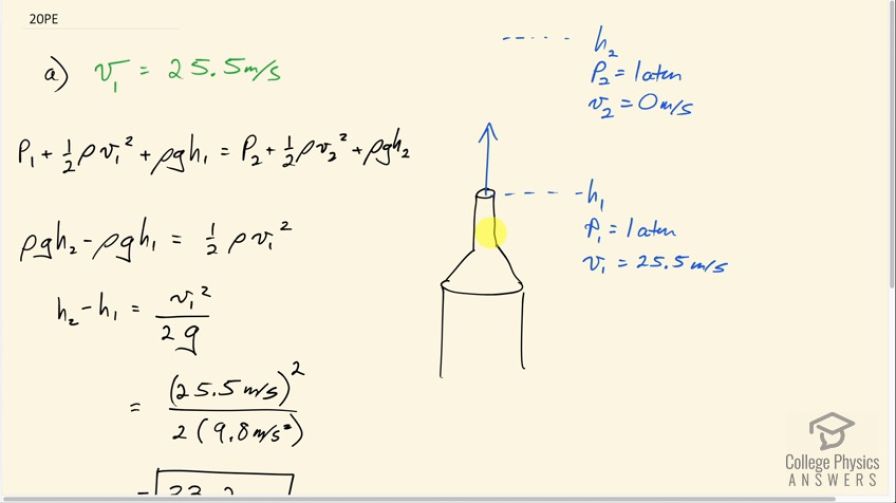 20PE
a) v₁ = 25.5 m/s
P₁ + 1/2 ρv₁² + ρgh₁ = P₂ + 1/2 ρv₂² + ρgh₂
ρgh₂ - ρgh₁ = 1/2 ρv₁²
h₂ - h₁ = v₁² / 2g
= (25.5 m/s)² / 2(9.8 m/s²)
h₂
P₂ = 1 atm
v₂ = 0 m/s
h₁
P₁ = 1 atm
v₁ = 25.5 m/s
College Physics
ANSWERS